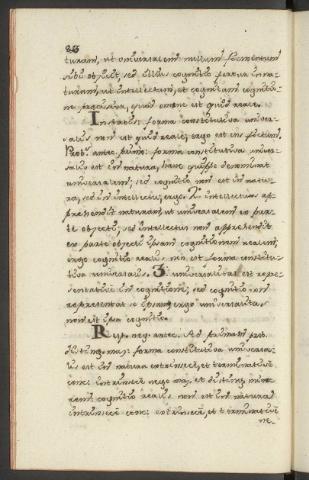 turam, ut universalem nullum fictum
sibi objicit, sed illius cognitio fertur in na-
turam, ut intellectam, et cognitam cognitio-
ne præcisiva, quod omne est quid reale.
Instabis: forma constitutiva univer-
salis non est quid reale; ergo est ens fictum.
Prob. antec. primo: forma constitutiva univer-
salis est in natura, hanc quippe denominat
universalem; sed cognitio non est in natu-
ra, sed in intellectu; ergo. 2º intellectus ap-
prehendit naturam, ut universalem ex par-
te objecti; sed intellectus non apprehendit
ex parte objecti ipsam cognitionem realem;
ergo cognitio realis non est forma constitu-
tiva universalis. 3º universalitas est repre-
sentativa in cognitione, sed cognitio non
representat se ipsam; ergo universalitas
non est ipsa cognitio.
Resp. neg. antec. Ad primam prob.
disting. maj: forma constitutiva universa-
lis est in natura extrinsece, et terminative
conc: intrinsece nego maj. et disting. min
cognitio realis non est in natura
intrinsece conc: extrinsece, et terminative
ne-